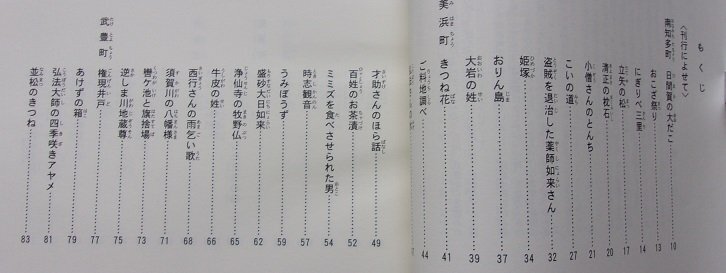 もくじ
〈刊行によせて〉
南知多町 日間賀の大だこ 10
おこさ祭り 13
にぎりべ三里 14
立矢の松 17
清正の枕石 20
小僧さんのとんち 21
こいの道 27
盗賊を退治した薬師如来さん 32
姫塚 34
おりん島 37
大岩の姓 39
美浜町 きつね花 41
ご料地調べ 44
才助さんのほら話 49
百姓のお茶漬 52
ミミズを食べさせられた男 54
時志観音 57
うみぼうず 59
盛砂大日如来 62
浄仙寺の牧野仏 65
牛皮の姓 66
西行さんの雨乞い歌 68
須賀川の八幡様 71
轡ケ池と旗捨場 73
逆しま川地蔵尊 75
武豊町 権現井戸 77
あけずの箱 79
弘法大師の四季咲きアヤメ 81
並松のきつね 83